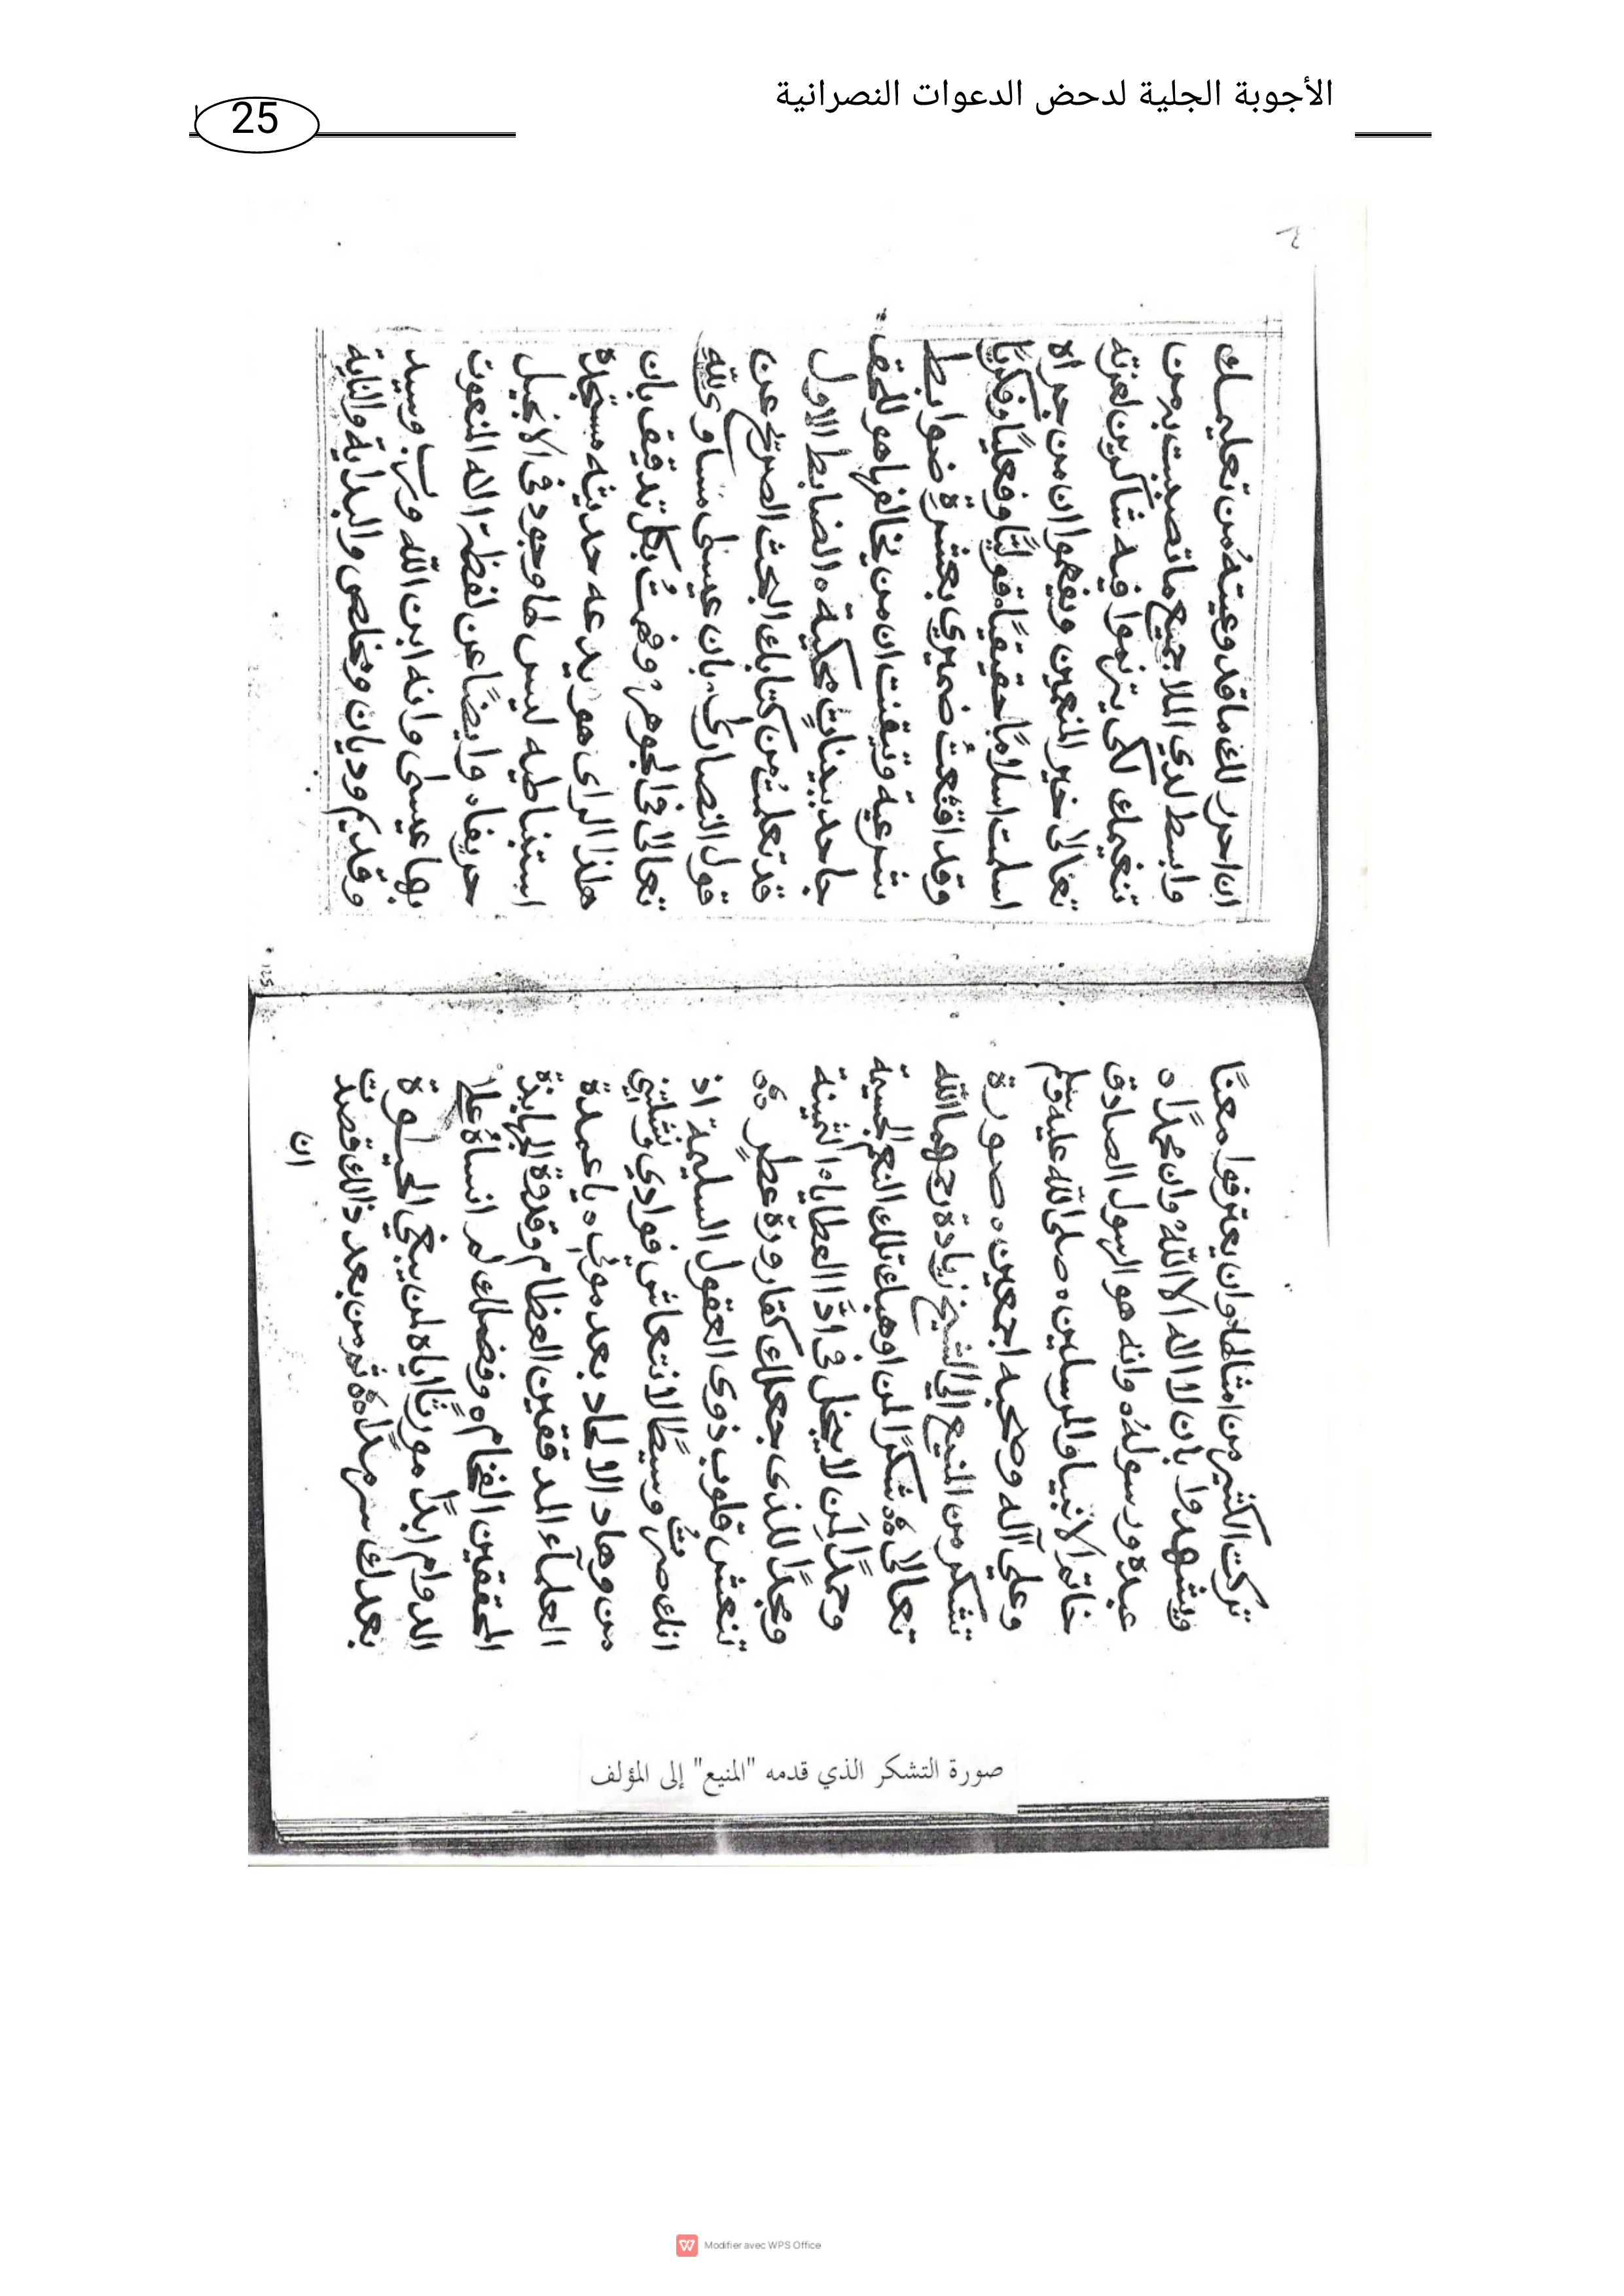 الأجوبة الجلية لدحض الدعوات النصرانية
25
تركت الكثير من امثالها وان يعترفوا معنًا
ويشهدوا بان لا اله الا اللهُ وان محمدًا ه
عبده ورسولهُ ه وانه هو الرسول الصادق
خاتم الانبيا والمرسلين ه صلى الله عليه وسلم
وعلي آله وصحبه اجمعين ه صورة
تشكر من المنيع الي الشيخ زيادة رحمهما الله
تعالى ه شكرًا لمن اوهبك تلك النعم الجسيمة
وحمدًا لمَن لا يبخل في اذًا العطاياه الثمينة
ومجدًا للذى جعلك كقارورة عطرٍ
تنعش قلوب ذوى العقول السليمة اذ
انك صرتُ وسيطًا لانتعاش فوادي ونشلتني
من وهاد الالحاد بعد موتي ه يا عمدة
العلمآء المدققين العظام وقدوة الجهابذة
المحققين الفخام ه وفضلك لم انساهُ علا
الدوام ابدًا مورثًا اياه لمن يبتغي الحيلوة
بعدك سرمدًا ه ثم من بعد ذالك قصدت
ان
٦
ان احرر لك ما قد وعيتهُ من تعليمك
وابسط لدي الملا جميع ما تصديت بردمن
تنغيمك لكى يترنموا فيه شاكرين لعزته
تعالى خير المنعمين ويفهموا ان من جراه
اسلمت اسلامًا حقيقيًا ه قوليًا وفعليًا وفكريًا
وقد اقتنعتُ ضميري بعشرةِ ضوابط
شرعية وتيقنت ان من يخالفها هو للحق
جاحد ببيناتٍ محكية ه الضابط الاول
قد تعلمتُ من كتابك البحث الصريح عن
قول النصارى بان عيسى مساوى لله
تعالى في الجوهر وفهمتُ بكل تدقيق بان
هذا الراى هو بدعه حديثه مستجدة
استنباطيه ليس لها وجود في الانجيل
حريفا ه وايضًا عن لفظة الاه المنعوت
بها عيسى وانه ابن الله ورب وسيد
وقديم وديان ومخلص والبداية والنهاية
صورة التشكر الذي قدمه "المنيع" إلى المؤلف
Modifier avec WPS Office